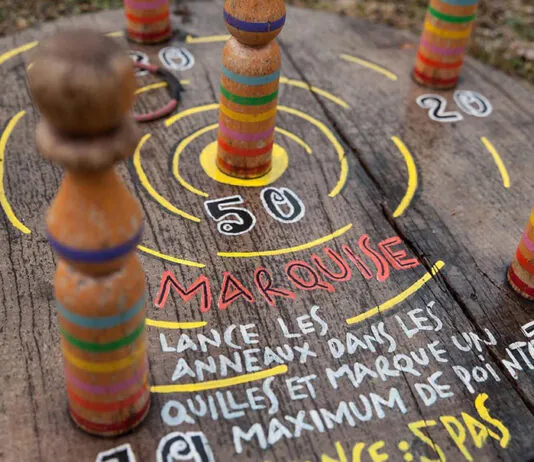 20
50
MARQUISE
LANCE LES
ANNEAUX DANS LES
QUILLES ET MARQUE UN
MAXIMUM DE POINT
10
NCE : 5 PAS